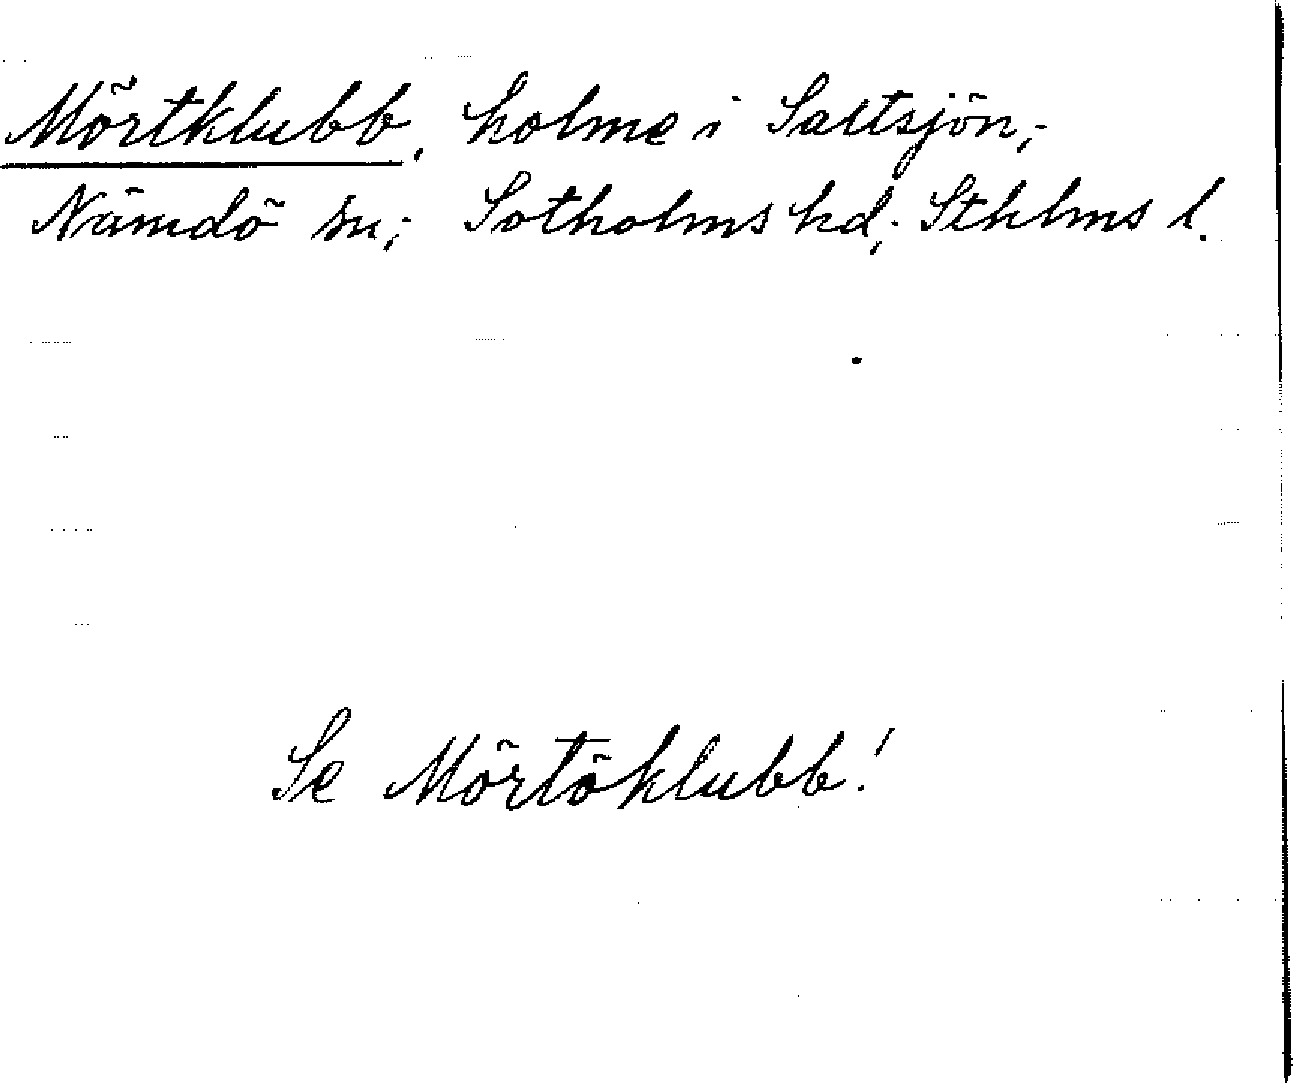 Mörtklubb, holme i Saltsjön;
Nämdö sn; Sotholms hd; Sthlms l.
Se Mörtöklubb!